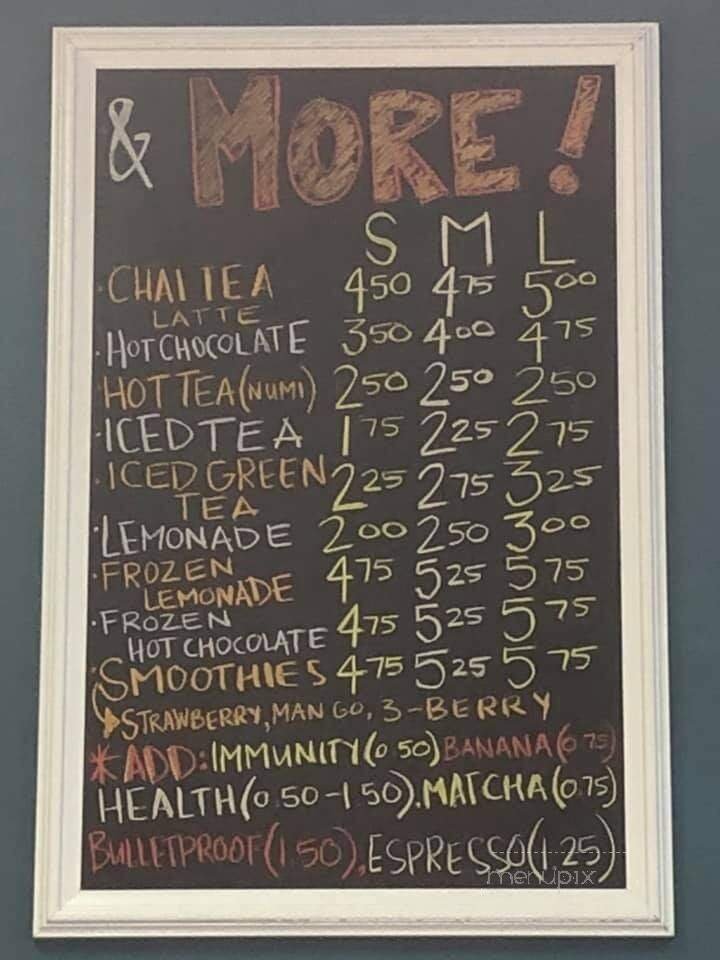 & MORE!
S M L
· CHAI TEA 4 50 4 75 5 00
LATTE
· HOT CHOCOLATE 3 50 4 00 4 75
· HOT TEA (NUMI) 2 50 2 50 2 50
· ICED TEA 1 75 2 25 2 75
· ICED GREEN 2 25 2 75 3 25
TEA
· LEMONADE 2 00 2 50 3 00
· FROZEN 4 75 5 25 5 75
LEMONADE
· FROZEN 4 75 5 25 5 75
HOT CHOCOLATE
· SMOOTHIES 4 75 5 25 5 75
STRAWBERRY, MANGO, 3-BERRY
* ADD: IMMUNITY (0 50) BANANA (0 75)
HEALTH (0 50 - 1 50). MATCHA (0.75)
BULLETPROOF (1.50), ESPRESSO (1.25)
menupix